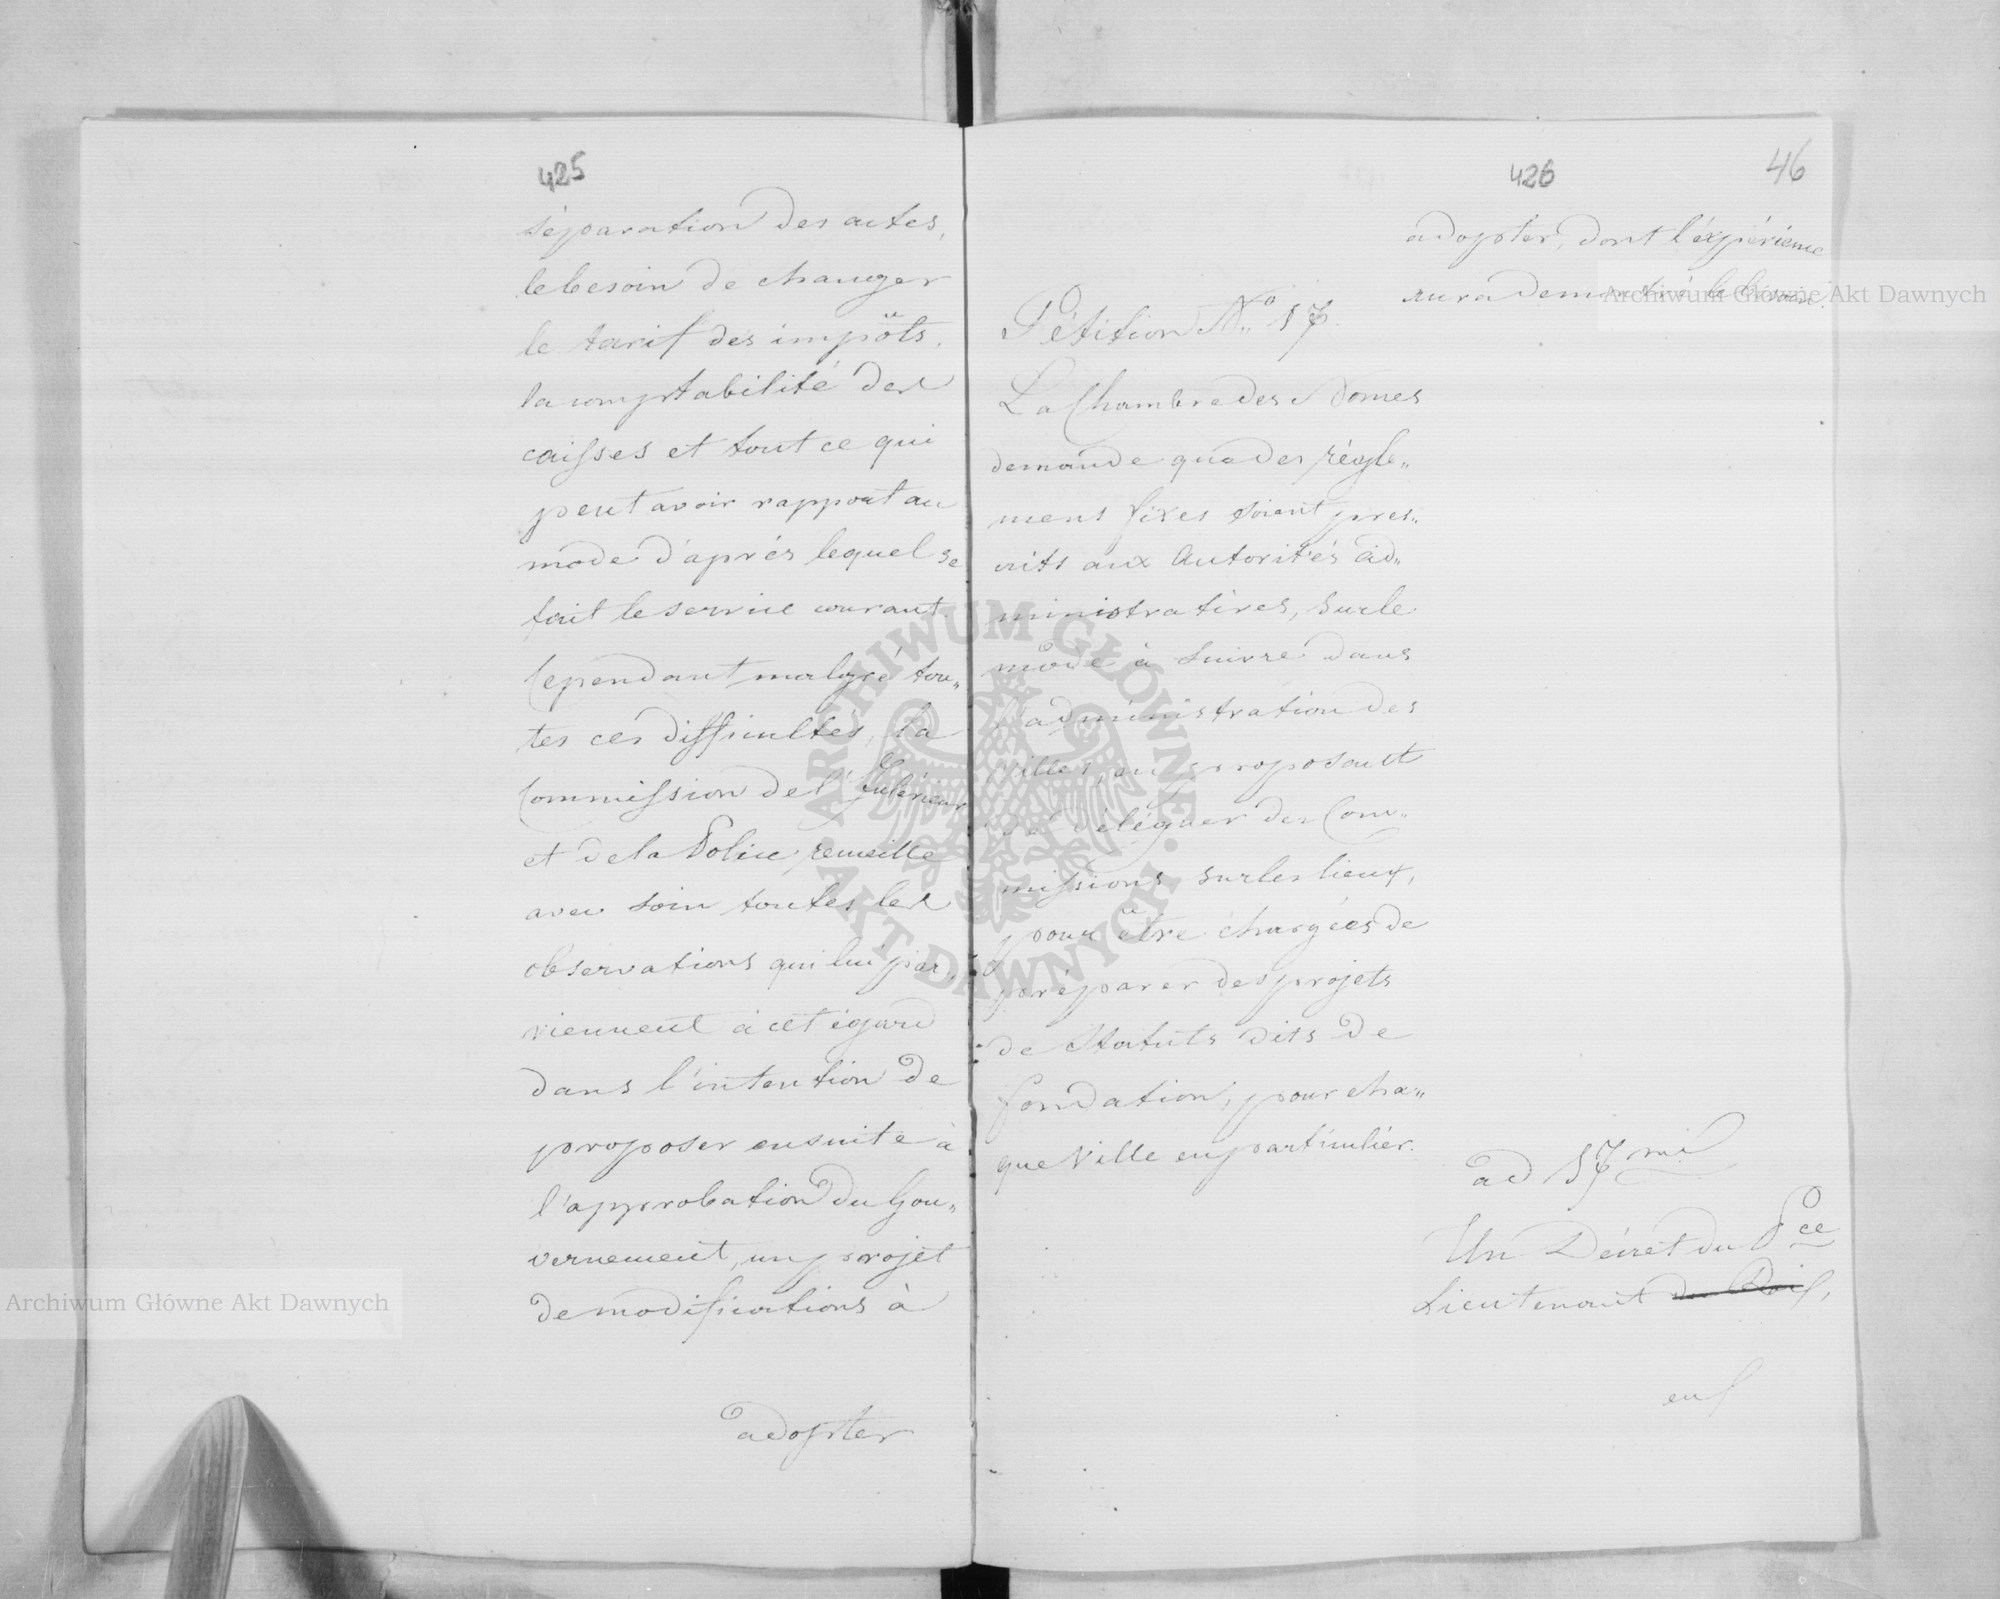 425
séparation des actes,
le besoin de changer
le tarif des impôts,
la comptabilité des
caisses et tout ce qui
peut avoir rapport au
mode d'après lequel se
fait le service courant.
Cependant malgré tou„
tes ces difficultés, la
Commission de l'Intérieur
et de la Police recueille
avec soin toutes les
observations qui lui par„
viennent à cet égard
dans l'intention de
proposer ensuite à
l'approbation du Gou„
vernement, un projet
de modifications à
adopter
426
46
adopter, dont l'éxpérience
aura demontré le besoin.
Pétition No 17.
La Chambre des Nonces
demande que des régle„
mens fixes soient pres„
crits aux Autorités ad„
ministratives, sur le
mode à suivre dans
l'administration des
villes, en proposant
de déléguer des Com„
missions sur les lieux,
pour être chargées de
préparer des projets
de Statuts dits de
fondation, pour cha„
que Ville en particulier.
ad 17mi
Un Décret du Pce
Lieutenant du Roi,
en
Archiwum Główne Akt Dawnych
Archiwum Główne Akt Dawnych
ARCHIWUM GŁÓWNE · AKT DAWNYCH ·